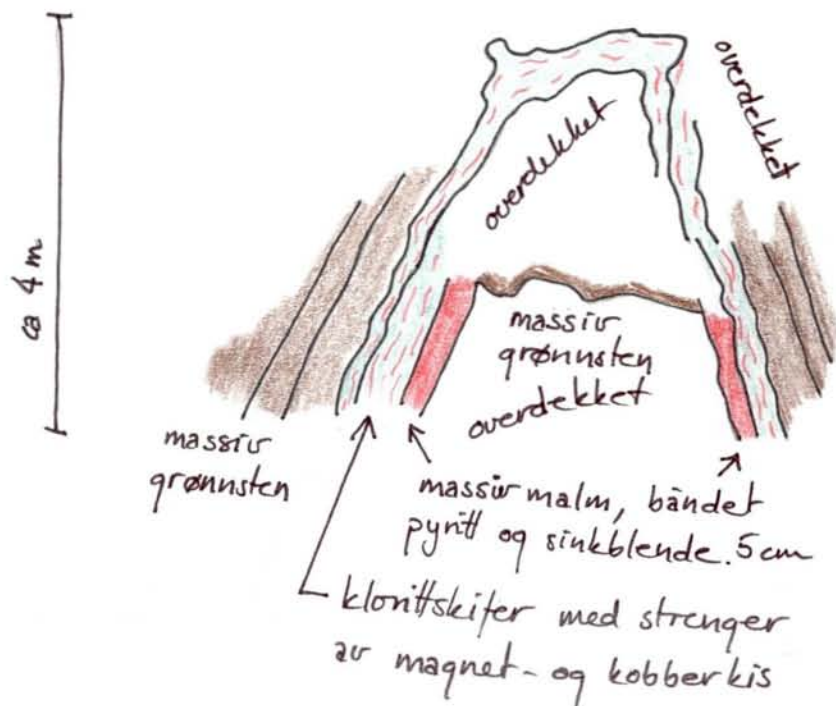 ca 4 m
overdekket
overdekket
massiv
grønnsten
overdekket
massiv
grønnsten
massiv malm, båndet
pyritt og sinkblende. 5 cm
klorittskifer med strenger
av magnet- og kobberkis